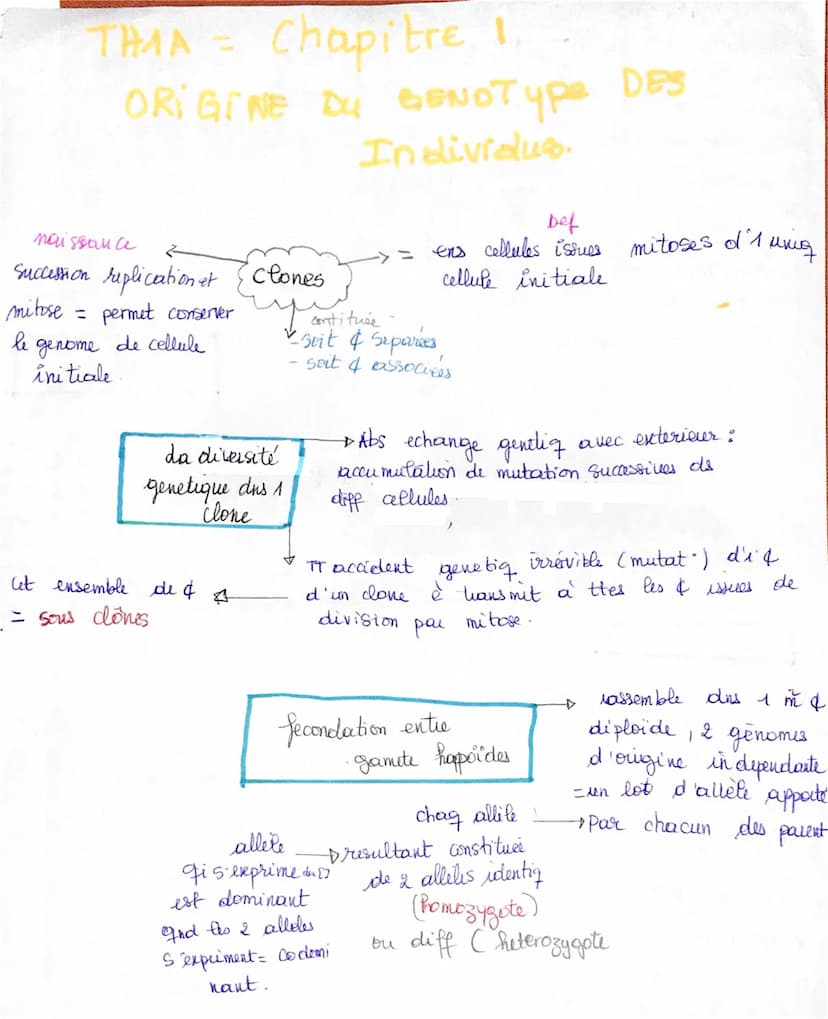 TH1A = Chapitre 1
ORIGINE DU GENOTYPE DES
Individus.
naissance
succession réplication et
mitose = permet conserver
le genome de cellule
initiale.
clones
Def
= ens cellules issues mitoses d'1 uniq
cellule initiale
contituée
- soit ¢ separées
- soit ¢ associées
La diversité
genetique dns 1
clone
Abs echange genetiq avec exterieur :
accumulation de mutation successives ds
diff cellules.
TT accident genetiq irrévible (mutat°) d'1 ¢
d'un clone è transmit à ttes les ¢ issues de
division par mitose.
Cet ensemble de ¢
= sous clônes
fecondation entre
gamete haploïdes
rassemble dns 1 m̃ ¢
diploïde, 2 génomes
d'origine independante
= un lot d'allèle apporté
Par chacun des parent
chaq allèle
resultant constituée
de 2 allèles identiq
(homozygote)
ou diff ( heterozygote
allèle
qi s'exprime
est dominant
qnd les 2 alleles
s'expriment = codomi
nant.